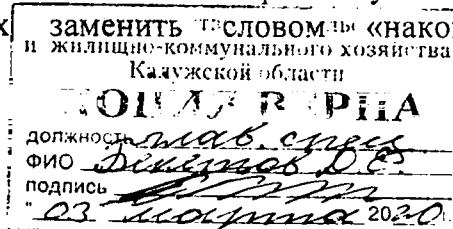 заменить словом «нако
и жилищно-коммунального хозяйства
Калужской области
КОПИЯ ВЕРНА
должность глав. спец
ФИО Бекетов Д.Е.
подпись
"03 марта 2020